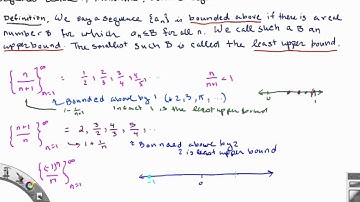 Definition. We say a sequence {an} is bounded above if there is a real
number B for which an ≤ B for all n. We call such a B an
upper bound. The smallest such B is called the least upper bound.
{n/(n+1)}∞n=1 = 1/2, 2/3, 3/4, 4/5, ... n/(n+1) < 1
Bounded above by 1 (& 2, 3, π, ...)
1 - 1/(n+1) In fact 1 is the least upper bound
0 1
{(n+1)/n}∞n=1 = 2, 3/2, 4/3, 5/4, ...
1 + 1/n Bounded above by 2
2 is least upper bound
{(-1)^n/n}∞n=1
-1 0